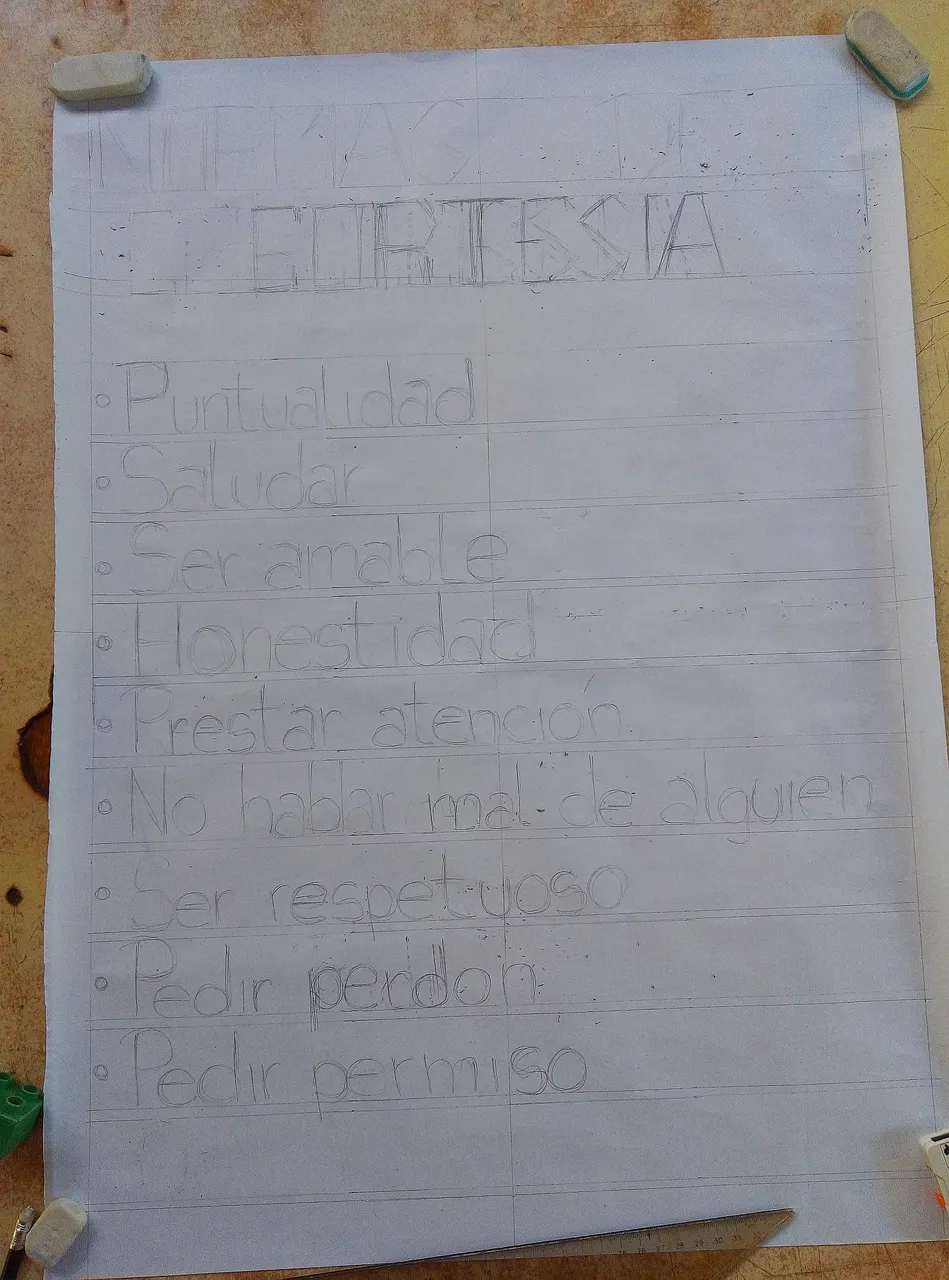 NORMAS DE
CORTESIA
Puntualidad
Saludar
Ser amable
Honestidad
Prestar atención
No hablar mal de alguien
Ser respetuoso
Pedir perdon
Pedir permiso